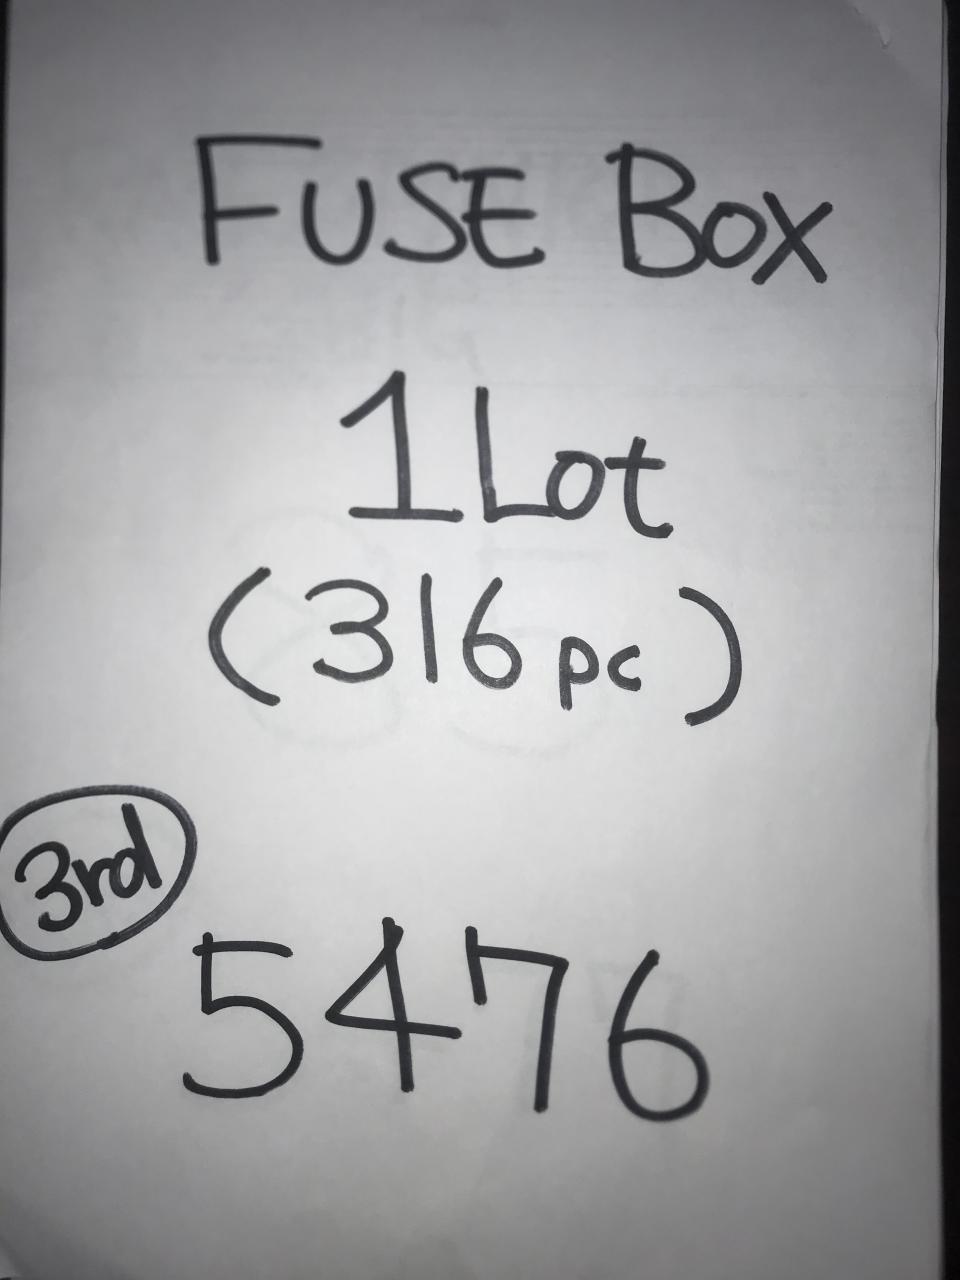 FUSE BOX
1 Lot
(316 pc)
3rd
5476